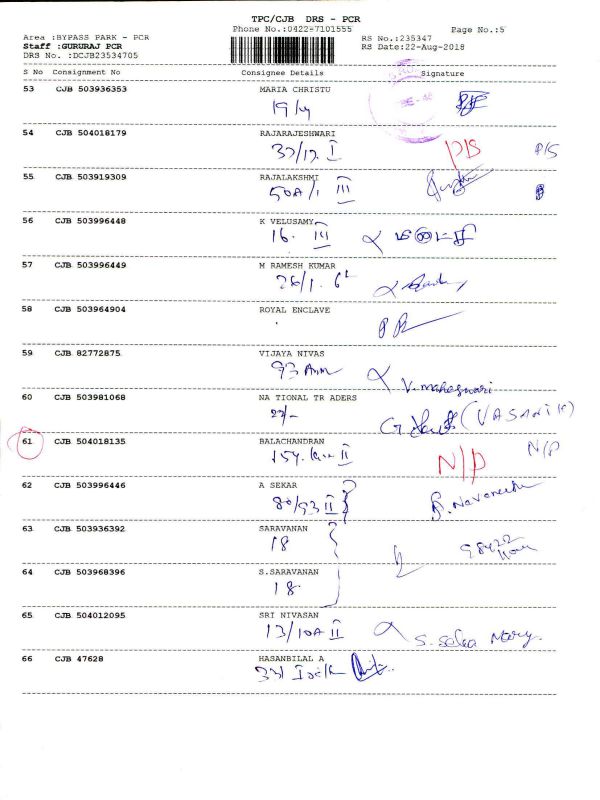 TPC/CJB DRS - PCR
Phone No.:0422-7101555 Page No.:5
Area :BYPASS PARK - PCR RS No.:235347
Staff :GURURAJ PCR RS Date:22-Aug-2018
DRS No. :DCJB23534705
S No Consignment No Consignee Details Signature
53 CJB 503936353 MARIA CHRISTU
54 CJB 504018179 RAJARAJESHWARI
II P/S
55 CJB 503919309 RAJALAKSHMI
50A/1 III
56 CJB 503996448 K VELUSAMY
16. III
57 CJB 503996449 M RAMESH KUMAR
26/1.
58 CJB 503964904 ROYAL ENCLAVE
59 CJB 82772875 VIJAYA NIVAS
93 V. maheswari
60 CJB 503981068 NA TIONAL TR ADERS
22/-
61 CJB 504018135 BALACHANDRAN
II N/P N/P
62 CJB 503996446 A SEKAR
80/93 II
63 CJB 503936392 SARAVANAN
18
64 CJB 503968396 S.SARAVANAN
18.
65 CJB 504012095 SRI NIVASAN
13/10A II S. Mary.
66 CJB 47628 HASANBILAL A